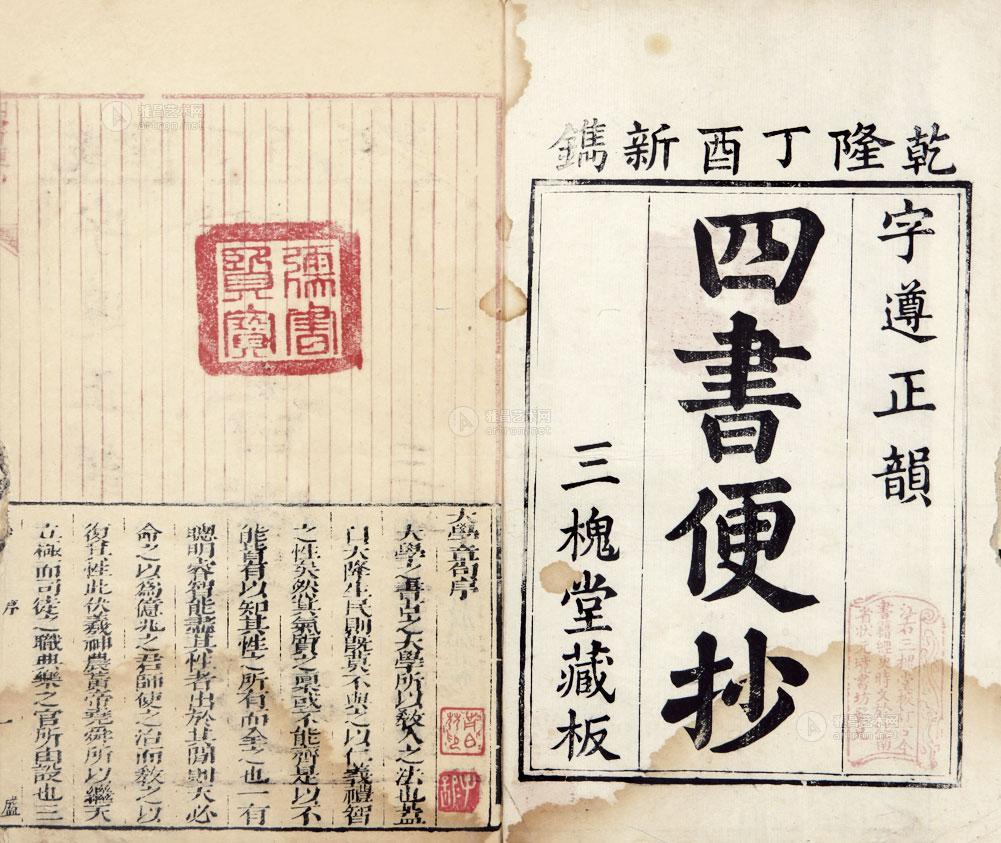 乾隆丁酉新鐫
字遵正韻
四書便抄
三槐堂藏板
大學章句序
大學之書古之大學所以教人之法也蓋
自天降生民則旣莫不與之以仁義禮智
之性矣然其氣質之稟或不能齊是以不
能皆有以知其性之所有而全之也一有
聰明睿智能盡其性者出於其閒則天必
命之以爲億兆之君師使之治而敎之以
復其性此伏羲神農黃帝堯舜所以繼天
立極而司徒之職典樂之官所由設也三
序
一
盛
雅昌艺术网
artron.net
雅昌艺术网
artron.net
雅昌艺术网
artron.net